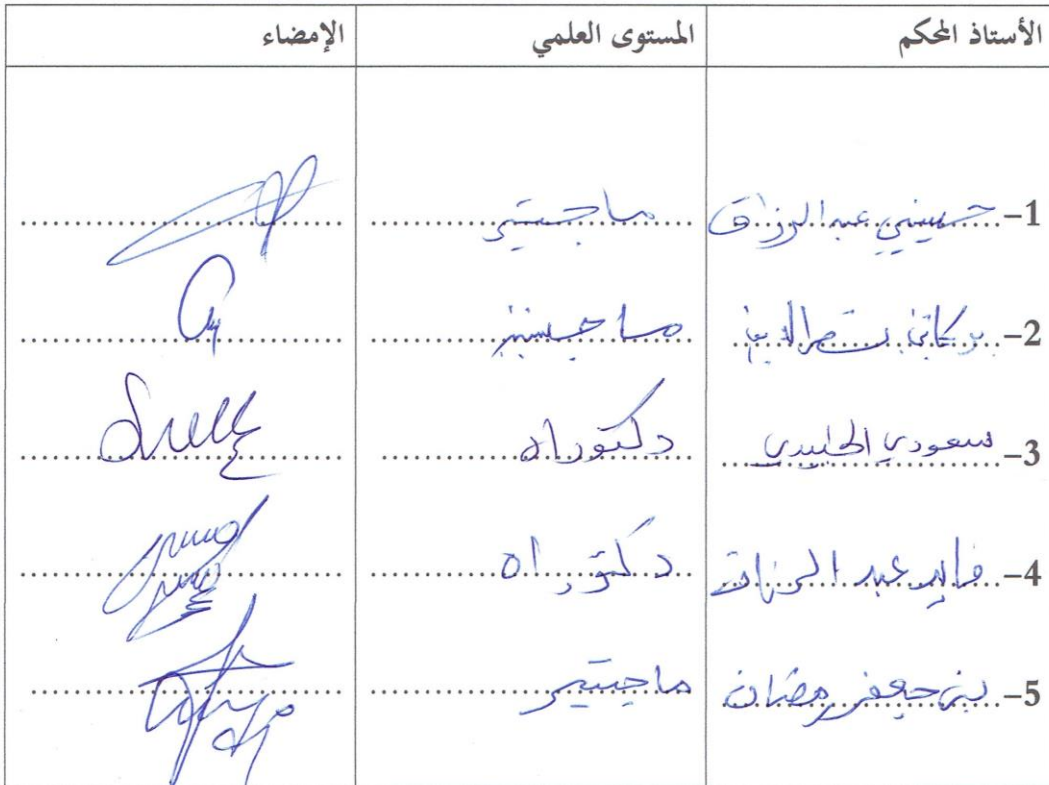 الأستاذ المحكم المستوى العلمي الإمضاء
1- حسيني عبد الرزاق ماجستير
2- بركاتي نصر الدين ماجستير
3- سعودي الجليدي دكتوراه
4- فايد عبد الرزاق دكتوراه
5- بن جعفر رمضان ماجستير